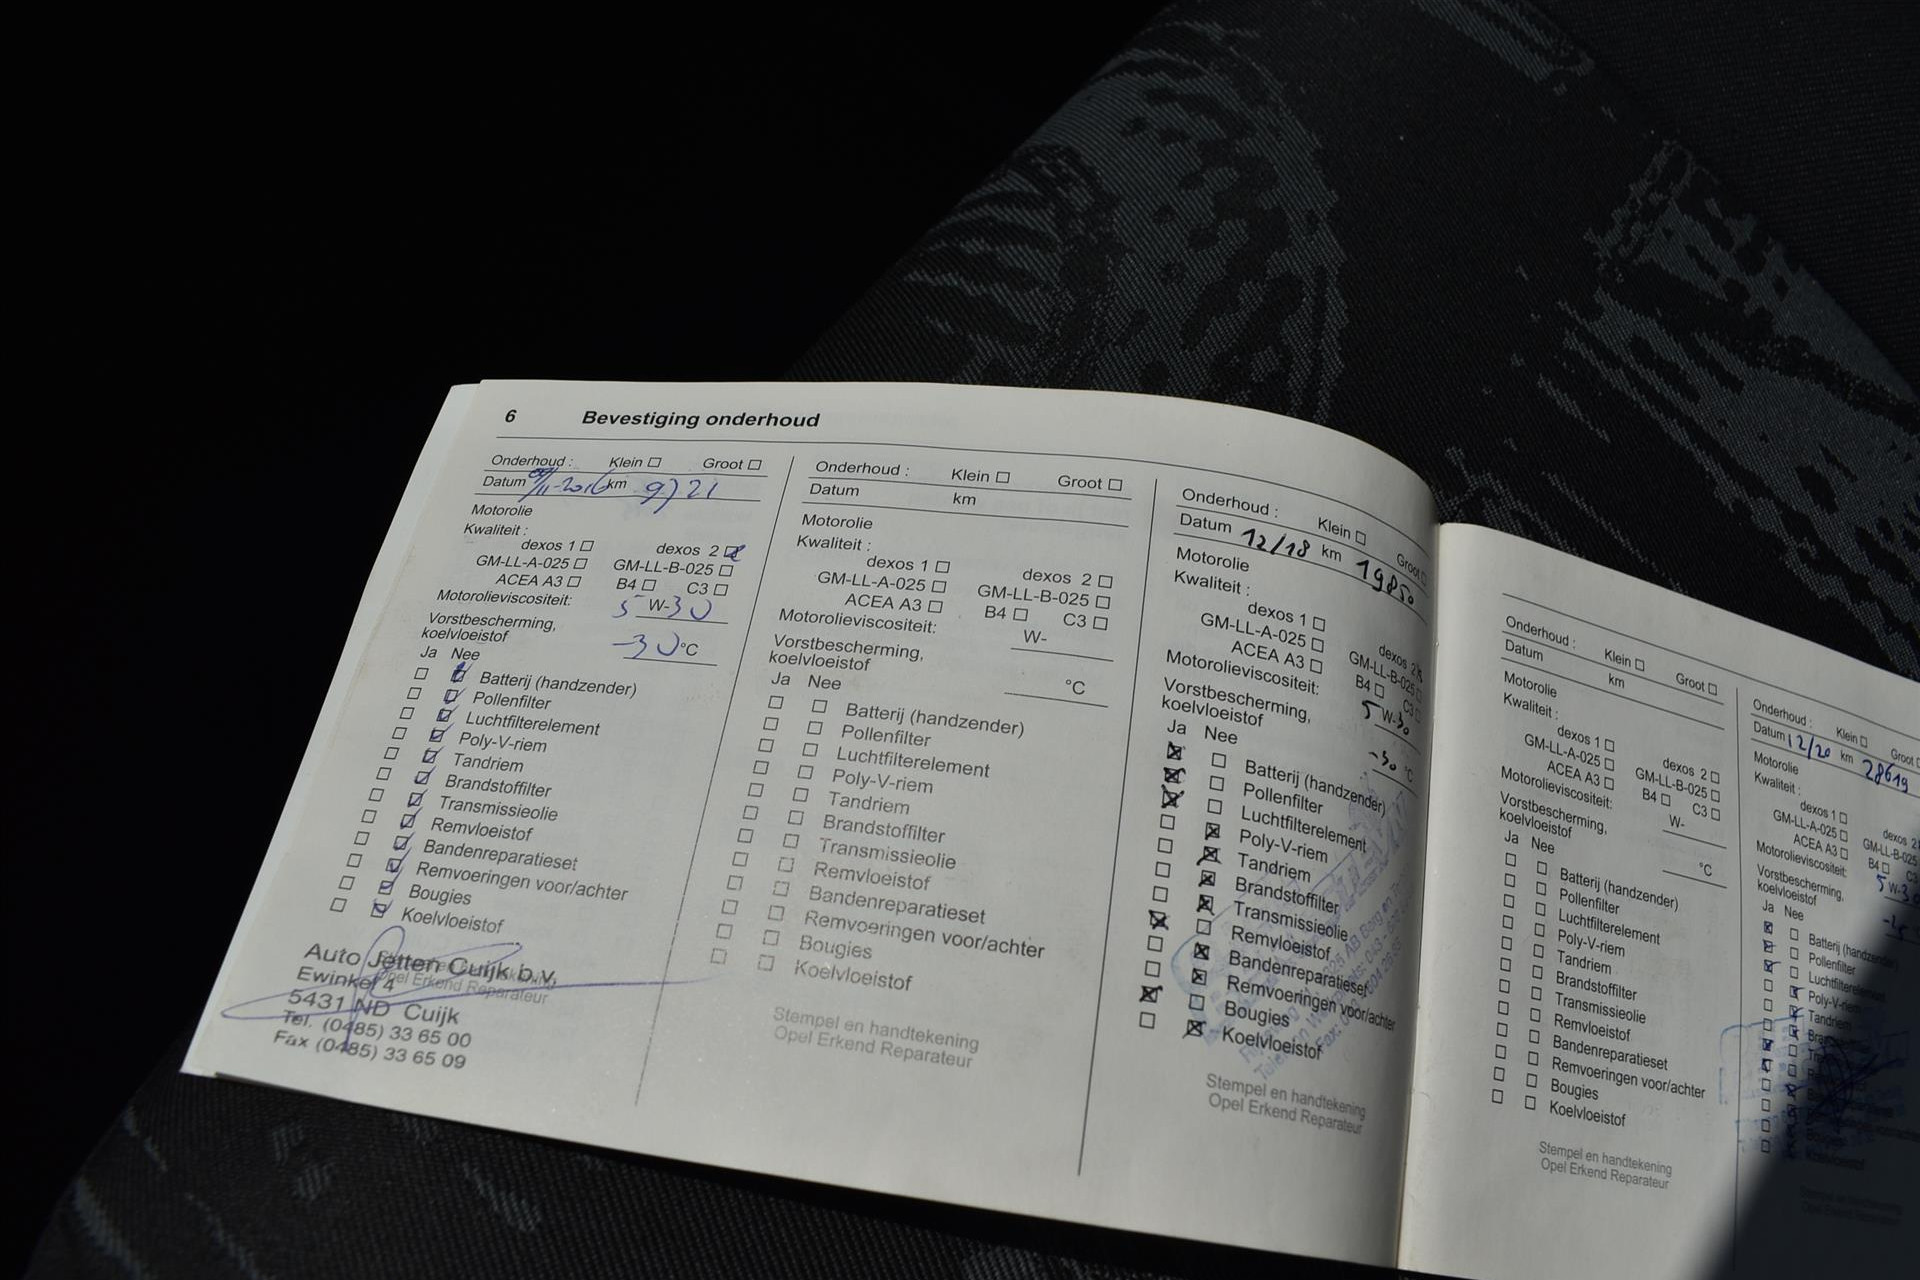 6 Bevestiging onderhoud
Onderhoud : Klein Groot
Datum km 9721
Motorolie
Kwaliteit :
dexos 1 dexos 2
GM-LL-A-025 GM-LL-B-025
ACEA A3 B4 C3
Motorolieviscositeit: 5 W-30
Vorstbescherming,
koelvloeistof -30 °C
Ja Nee
Batterij (handzender)
Pollenfilter
Luchtfilterelement
Poly-V-riem
Tandriem
Brandstoffilter
Transmissieolie
Remvloeistof
Bandenreparatieset
Remvoeringen voor/achter
Bougies
Koelvloeistof
Auto Jetten Cuijk b.v.
Ewinkel 4
Opel Erkend Reparateur
5431 ND Cuijk
Tel. (0485) 33 65 00
Fax (0485) 33 65 09
Onderhoud : Klein Groot
Datum km
Motorolie
Kwaliteit :
dexos 1 dexos 2
GM-LL-A-025 GM-LL-B-025
ACEA A3 B4 C3
Motorolieviscositeit: W-
Vorstbescherming,
koelvloeistof °C
Ja Nee
Batterij (handzender)
Pollenfilter
Luchtfilterelement
Poly-V-riem
Tandriem
Brandstoffilter
Transmissieolie
Remvloeistof
Bandenreparatieset
Remvoeringen voor/achter
Bougies
Koelvloeistof
Stempel en handtekening
Opel Erkend Reparateur
Onderhoud : Klein Groot
Datum 12/18 km 19850
Motorolie
Kwaliteit :
dexos 1 dexos 2
GM-LL-A-025 GM-LL-B-025
ACEA A3 B4 C3
Motorolieviscositeit: 5 W-30
Vorstbescherming,
koelvloeistof -30 °C
Ja Nee
Batterij (handzender)
Pollenfilter
Luchtfilterelement
Poly-V-riem
Tandriem
Brandstoffilter
Transmissieolie
Remvloeistof
Bandenreparatieset
Remvoeringen voor/achter
Bougies
Koelvloeistof
Stempel en handtekening
Opel Erkend Reparateur
Onderhoud : Klein Groot
Datum km
Motorolie
Kwaliteit :
dexos 1 dexos 2
GM-LL-A-025 GM-LL-B-025
ACEA A3 B4 C3
Motorolieviscositeit: W-
Vorstbescherming,
koelvloeistof °C
Ja Nee
Batterij (handzender)
Pollenfilter
Luchtfilterelement
Poly-V-riem
Tandriem
Brandstoffilter
Transmissieolie
Remvloeistof
Bandenreparatieset
Remvoeringen voor/achter
Bougies
Koelvloeistof
Stempel en handtekening
Opel Erkend Reparateur
Onderhoud : Klein Groot
Datum 12/20 km 28619
Motorolie
Kwaliteit :
dexos 1 dexos 2
GM-LL-A-025 GM-LL-B-025
ACEA A3 B4 C3
Motorolieviscositeit: 5 W-30
Vorstbescherming,
koelvloeistof
Ja Nee
Batterij (handzender)
Pollenfilter
Luchtfilterelement
Poly-V-riem
Tandriem
Koelvloeistof